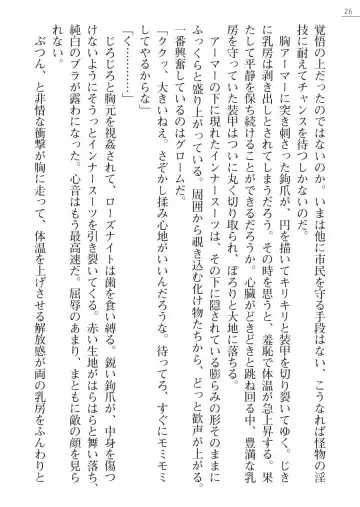 26
覚悟の上だったのではないのか　いまは他に市民を守る手段はない、こうなれば怪物の淫
技に耐えてチャンスを待つしかないのだ。
　胸アーマーに突き刺さった鉤爪が、円を描いてキリキリと装甲を切り裂いてゆく。じき
に乳房は剥き出しとされてしまうだろう。その時を思うと、羞恥で体温が急上昇する。果
たして平静を保ち続けることができるだろうか。心臓がどきどきと跳ね回る中、豊満な乳
房を守っていた装甲はついに丸く切り取られ、ぽろりと大地に落ちる。
　アーマーの下に現れたインナースーツは、その下に隠されている膨らみの形そのままに
ふっくらと盛り上がっている。周囲から覗き込む化け物たちから、どっと歓声が上がる。
一番興奮しているのはグロームだ。
「ククッ、大きいねえ。さぞかし揉み心地がいいんだろうな。待ってろ、すぐにモミモミ
してやるからな」
「く…………」
　じろじろと胸元を視姦されて、ローズナイトは歯を食い縛る。鋭い鉤爪が、中身を傷つ
けないようにそうっとインナースーツを引き裂いてくる。赤い生地がはらはらと舞い落ち、
純白のブラが露わになった。心音はもう最高速だ。屈辱のあまり、まともに敵の顔を見ら
れない。
　ぶつん、と非情な衝撃が胸に走って、体温を上げさせる解放感が両の乳房をふんわりと